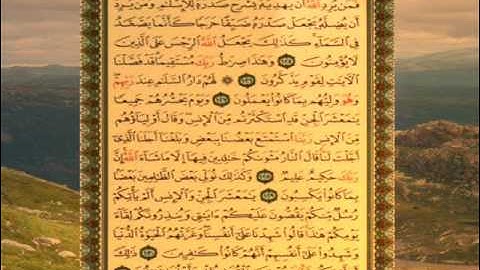 فَمَن يُرِدِ ٱللَّهُ أَن يَهْدِيَهُۥ يَشْرَحْ صَدْرَهُۥ لِلْإِسْلَٰمِ وَمَن يُرِدْ
أَن يُضِلَّهُۥ يَجْعَلْ صَدْرَهُۥ ضَيِّقًا حَرَجًا كَأَنَّمَا يَصَّعَّدُ
فِى ٱلسَّمَآءِ كَذَٰلِكَ يَجْعَلُ ٱللَّهُ ٱلرِّجْسَ عَلَى ٱلَّذِينَ
لَا يُؤْمِنُونَ ١٢٥ وَهَٰذَا صِرَٰطُ رَبِّكَ مُسْتَقِيمًا قَدْ فَصَّلْنَا
ٱلْءَايَٰتِ لِقَوْمٍ يَذَّكَّرُونَ ١٢٦ ۞ لَهُمْ دَارُ ٱلسَّلَٰمِ عِندَ رَبِّهِمْ
وَهُوَ وَلِيُّهُم بِمَا كَانُوا۟ يَعْمَلُونَ ١٢٧ وَيَوْمَ يَحْشُرُهُمْ جَمِيعًا
يَٰمَعْشَرَ ٱلْجِنِّ قَدِ ٱسْتَكْثَرْتُم مِّنَ ٱلْإِنسِ وَقَالَ أَوْلِيَآؤُهُم
مِّنَ ٱلْإِنسِ رَبَّنَا ٱسْتَمْتَعَ بَعْضُنَا بِبَعْضٍ وَبَلَغْنَآ أَجَلَنَا ٱلَّذِىٓ
أَجَّلْتَ لَنَا قَالَ ٱلنَّارُ مَثْوَىٰكُمْ خَٰلِدِينَ فِيهَآ إِلَّا مَا شَآءَ ٱللَّهُ إِنَّ
رَبَّكَ حَكِيمٌ عَلِيمٌ ١٢٨ وَكَذَٰلِكَ نُوَلِّى بَعْضَ ٱلظَّٰلِمِينَ بَعْضًۢا
بِمَا كَانُوا۟ يَكْسِبُونَ ١٢٩ يَٰمَعْشَرَ ٱلْجِنِّ وَٱلْإِنسِ أَلَمْ يَأْتِكُمْ
رُسُلٌ مِّنكُمْ يَقُصُّونَ عَلَيْكُمْ ءَايَٰتِى وَيُنذِرُونَكُمْ لِقَآءَ
يَوْمِكُمْ هَٰذَا قَالُوا۟ شَهِدْنَا عَلَىٰٓ أَنفُسِنَا وَغَرَّتْهُمُ ٱلْحَيَوٰةُ ٱلدُّنْيَا
وَشَهِدُوا۟ عَلَىٰٓ أَنفُسِهِمْ أَنَّهُمْ كَانُوا۟ كَٰفِرِينَ ١٣٠ ذَٰلِكَ